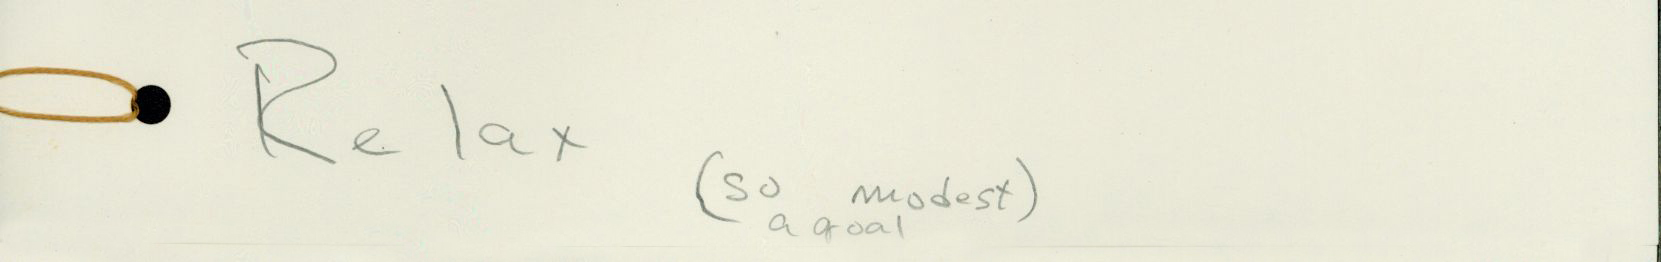 Relax
(so modest)
a goal